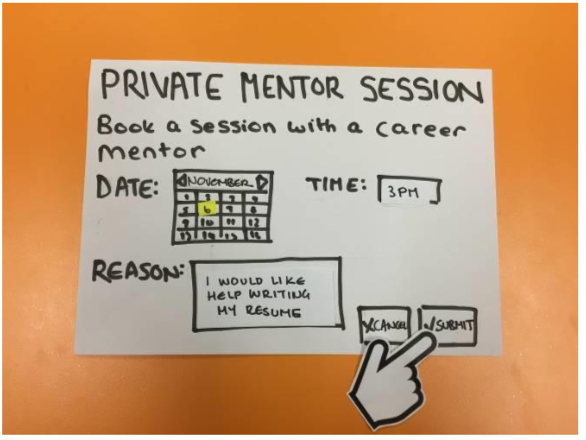 PRIVATE MENTOR SESSION
Book a session with a career
mentor
DATE:
NOVEMBER
1 2 3 4
5 6 7 8
9 10 11 12
13 14 15 16
TIME:
3PM
REASON:
I WOULD LIKE
HELP WRITING
MY RESUME
CANCEL
SUBMIT